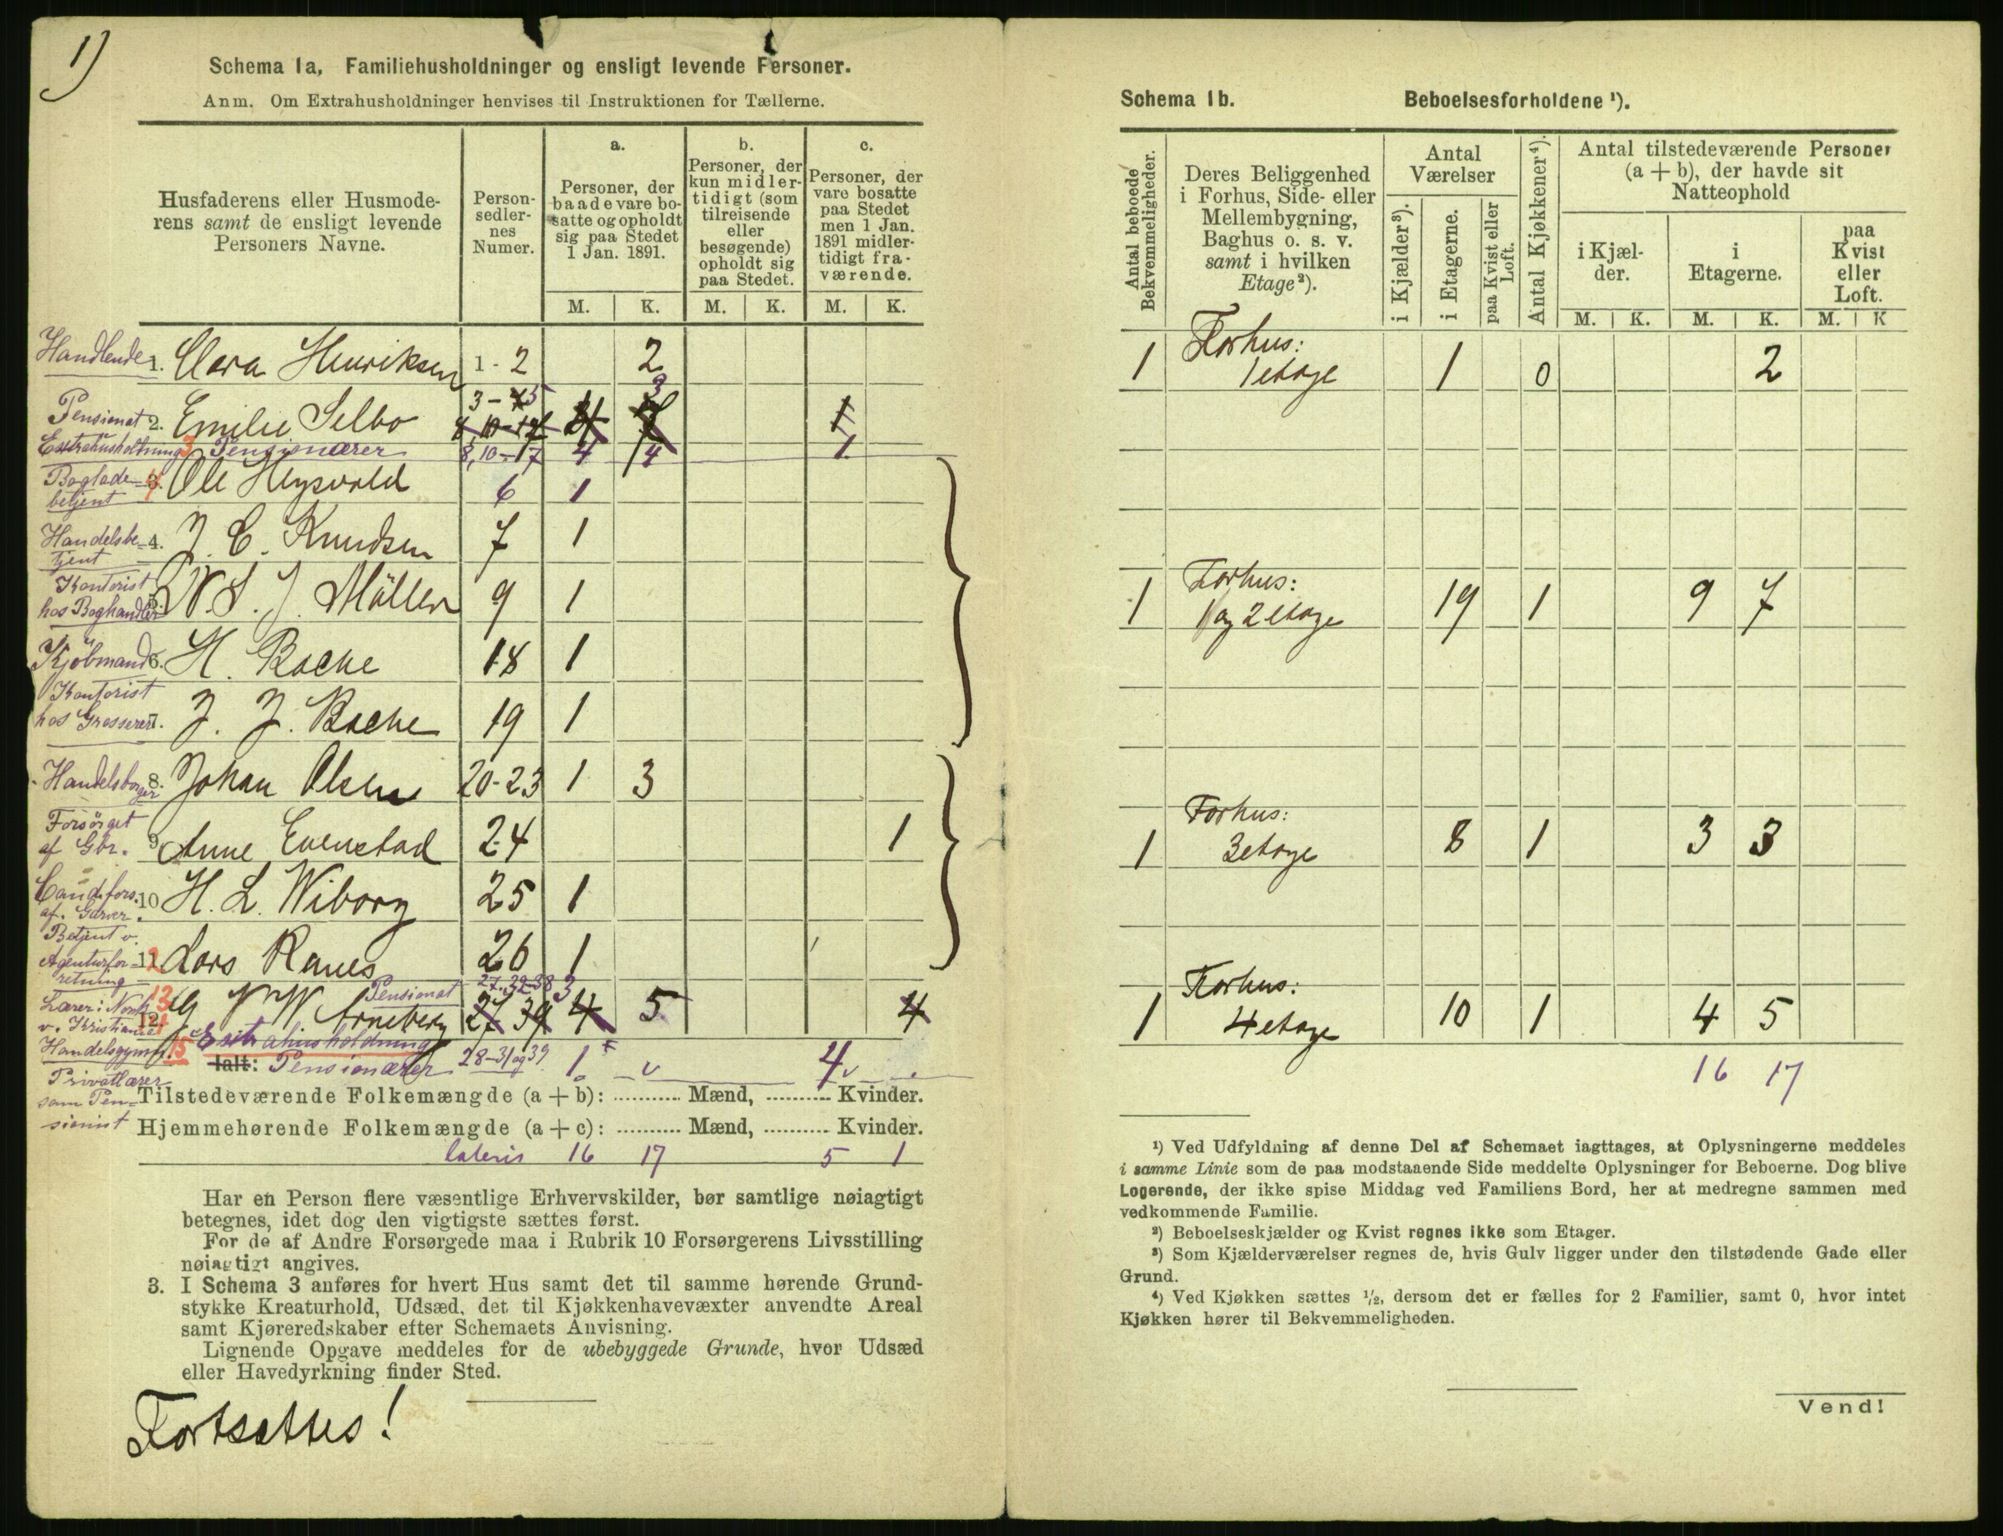 1)
Schema 1a, Familiehusholdninger og ensligt levende Personer.
Anm. Om Extrahusholdninger henvises til Instruktionen for Tællerne.
Husfaderens eller Husmoderens samt de ensligt levende Personers Navne.
Personsedlernes Numer.
a. Personer, der baade vare bosatte og opholdt sig paa Stedet 1 Jan. 1891.
b. Personer, der kun midlertidigt (som tilreisende eller besøgende) opholdt sig paa Stedet.
c. Personer, der vare bosatte paa Stedet men 1 Jan. 1891 midlertidigt fraværende.
M. K. M. K. M. K.
Handlende 1. Clara Henriksen 1-2 2
Pensionat 2. Emilie Selbo 3-5 3
8, 10-17
Extrahusholdning 3 Pensionærer 8, 10-17 4 4 1
Boglade= betjent 3. Ole Hegsvold 6 1
Handelsbe= tjent 4. J. C. Knudsen 7 1
Kontorist hos Boghandler 5. W. S. J. Möller 9 1
Kjøbmand 6. H. Bache 18 1
Kontorist hos Grosserer 7. J. J. Bache 19 1
Handelsborger 8. Johan Olsen 20-23 1 3
Forsørget af Gbr. 9. Anne Evenstad 24 1
Cand. fors. af Garver. 10. H. L. Wiborg 25 1
Betjent v. Agenturfor= retning 11. Lars Ranes 26 1
27.32-38 3
Pensionat
13 12. Arneberg 27 39 4 5 4
Lærer i Norsk v. Kristiania Handelsgymn. Privatlærer som Pen= sionist
15 Extrahusholdning
Ialt: Pensionærer 28-31 og 39 1 4
Tilstedeværende Folkemængde (a + b): Mænd, Kvinder.
Hjemmehørende Folkemængde (a + c): Mænd, Kvinder.
lateris 16 17 5 1
Har en Person flere væsentlige Erhvervskilder, bør samtlige nøiagtigt
betegnes, idet dog den vigtigste sættes først.
For de af Andre Forsørgede maa i Rubrik 10 Forsørgerens Livsstilling
nøiagtigt angives.
3. I Schema 3 anføres for hvert Hus samt det til samme hørende Grund-
stykke Kreaturhold, Udsæd, det til Kjøkkenhavevæxter anvendte Areal
samt Kjøreredskaber efter Schemaets Anvisning.
Lignende Opgave meddeles for de ubebyggede Grunde, hvor Udsæd
eller Havedyrkning finder Sted.
Fortsættes!
Schema 1b. Beboelsesforholdene ¹).
Antal beboede Bekvemmeligheder.
Deres Beliggenhed i Forhus, Side- eller Mellembygning, Baghus o. s. v. samt i hvilken Etage ²).
Antal Værelser
i Kjælder ³).
i Etagerne.
paa Kvist eller Loft.
Antal Kjøkkener ⁴).
Antal tilstedeværende Personer (a + b), der havde sit Natteophold
i Kjælder.
i Etagerne.
paa Kvist eller Loft.
M. K. M. K. M. K
1 Forhus: 1 etage 1 0 2
1 Forhus: 1 og 2 etage 19 1 9 7
1 Forhus: 3 etage 8 1 3 3
1 Forhus: 4 etage 10 1 4 5
16 17
¹) Ved Udfyldning af denne Del af Schemaet iagttages, at Oplysningerne meddeles
i samme Linie som de paa modstaaende Side meddelte Oplysninger for Beboerne. Dog blive
Logerende, der ikke spise Middag ved Familiens Bord, her at medregne sammen med
vedkommende Familie.
²) Beboelseskjælder og Kvist regnes ikke som Etager.
³) Som Kjælderværelser regnes de, hvis Gulv ligger under den tilstødende Gade eller
Grund.
⁴) Ved Kjøkken sættes 1/2, dersom det er fælles for 2 Familier, samt 0, hvor intet
Kjøkken hører til Bekvemmeligheden.
Vend!